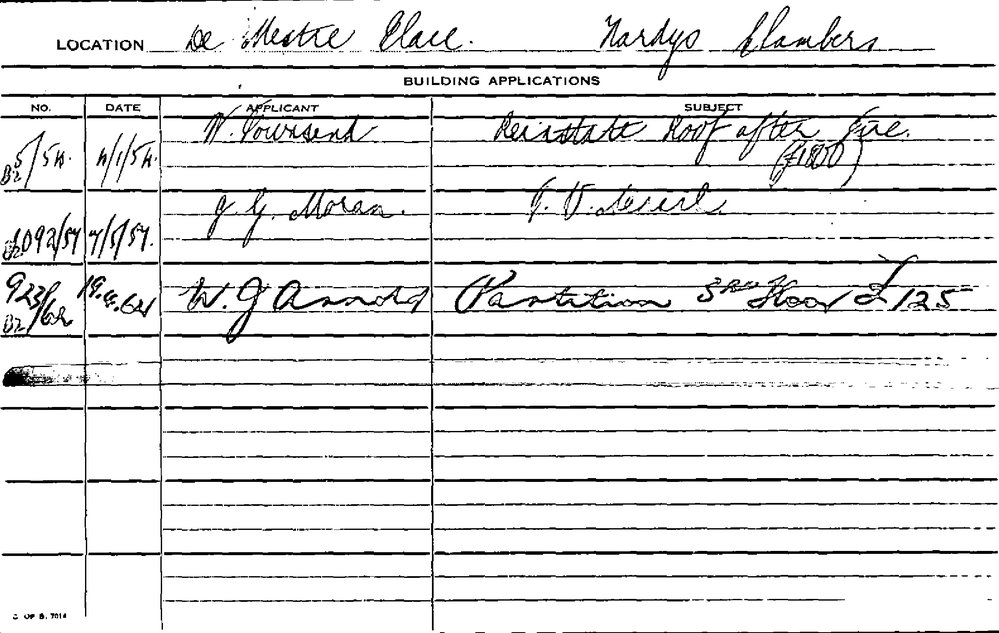 LOCATION De Mestre Place. Hardys Chambers
BUILDING APPLICATIONS
NO. DATE APPLICANT SUBJECT
5/54. 4/1/54. W. Townsend Reinstate Roof after fire.
(£1800)
1092/57 7/5/57. J. G. Moran. T. V. Aerial.
923/62 19.4.62 W. J Arnold Partition 3RD Floor £125
C OF S. 7014